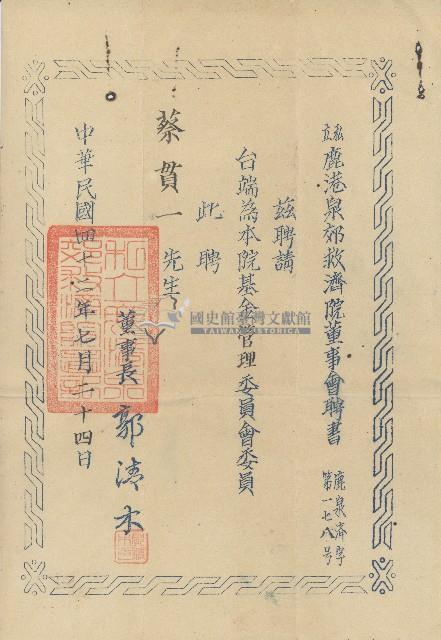 私立鹿港泉郊救濟院董事會聘書
鹿泉濟字
第一七八号
茲聘請
台端為本院基金管理委員會委員
此聘
蔡貫一先生
董事長 郭清木
中華民國四十二年七月二十四日
國史館臺灣文獻館
TAIWAN HISTORICA